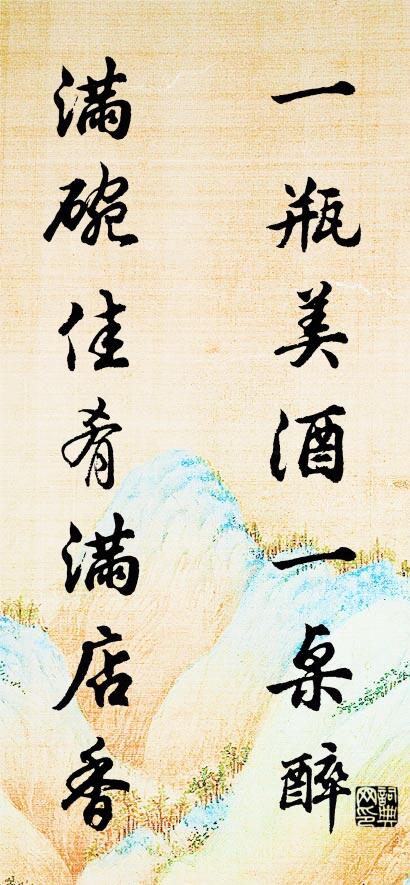 一瓶美酒一桌醉
满碗佳肴满店香